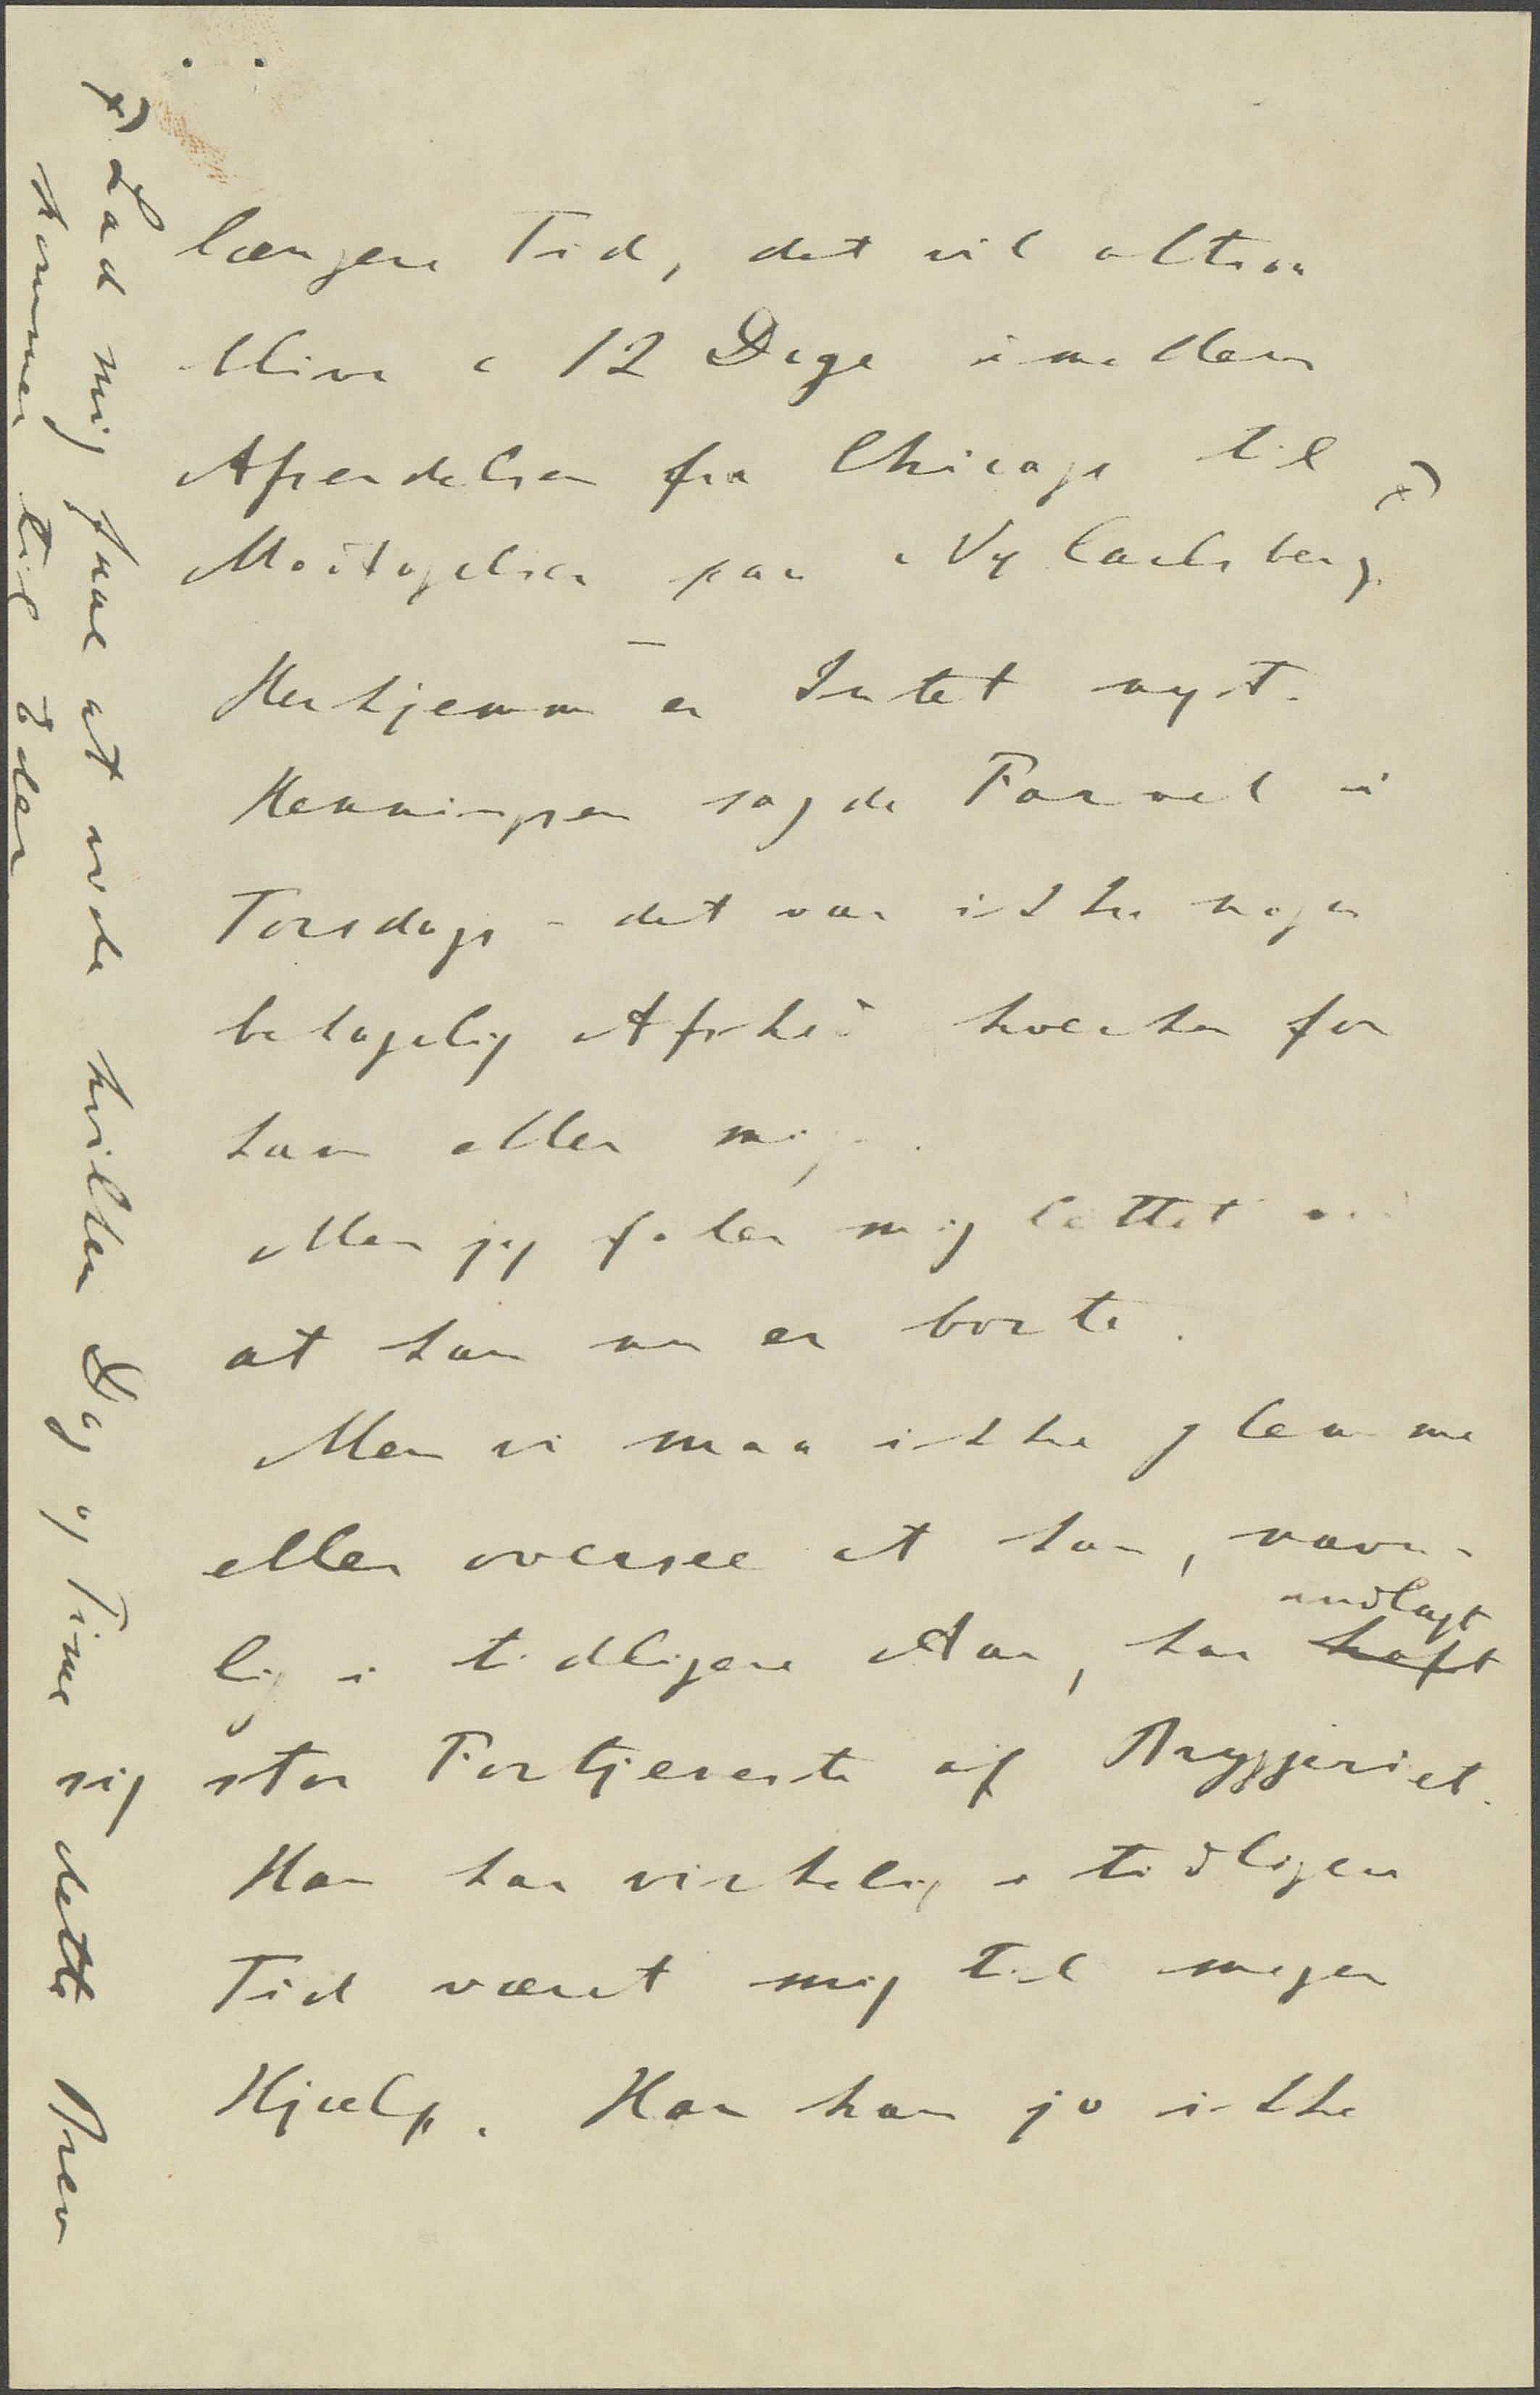 længere Tid, det vil altsaa
blive c 12 Dage imellem
Afsendelsen fra Chicago til x)
Modtagelsen paa Ny Carlsberg.
—
Herhjemme er Intet nyt.
Henningsen sagde Farvel i
Torsdags - det var ikke nogen
behagelig Afsked hverken for
ham eller mig.
Men jeg føler mig lettet ved
at han nu er borte.
Men vi maa ikke glemme
eller oversee at han, navn-
lig i tidligere Aar, har haft indlagt
stor Fortjeneste af Bryggeriet.
Han har virkelig i tidligere
Tid været mig til megen
Hjælp. Han kan jo ikke
x) Lad mig faae at vide hvilken Dag og Time sig dette Brev
kommer til Eder